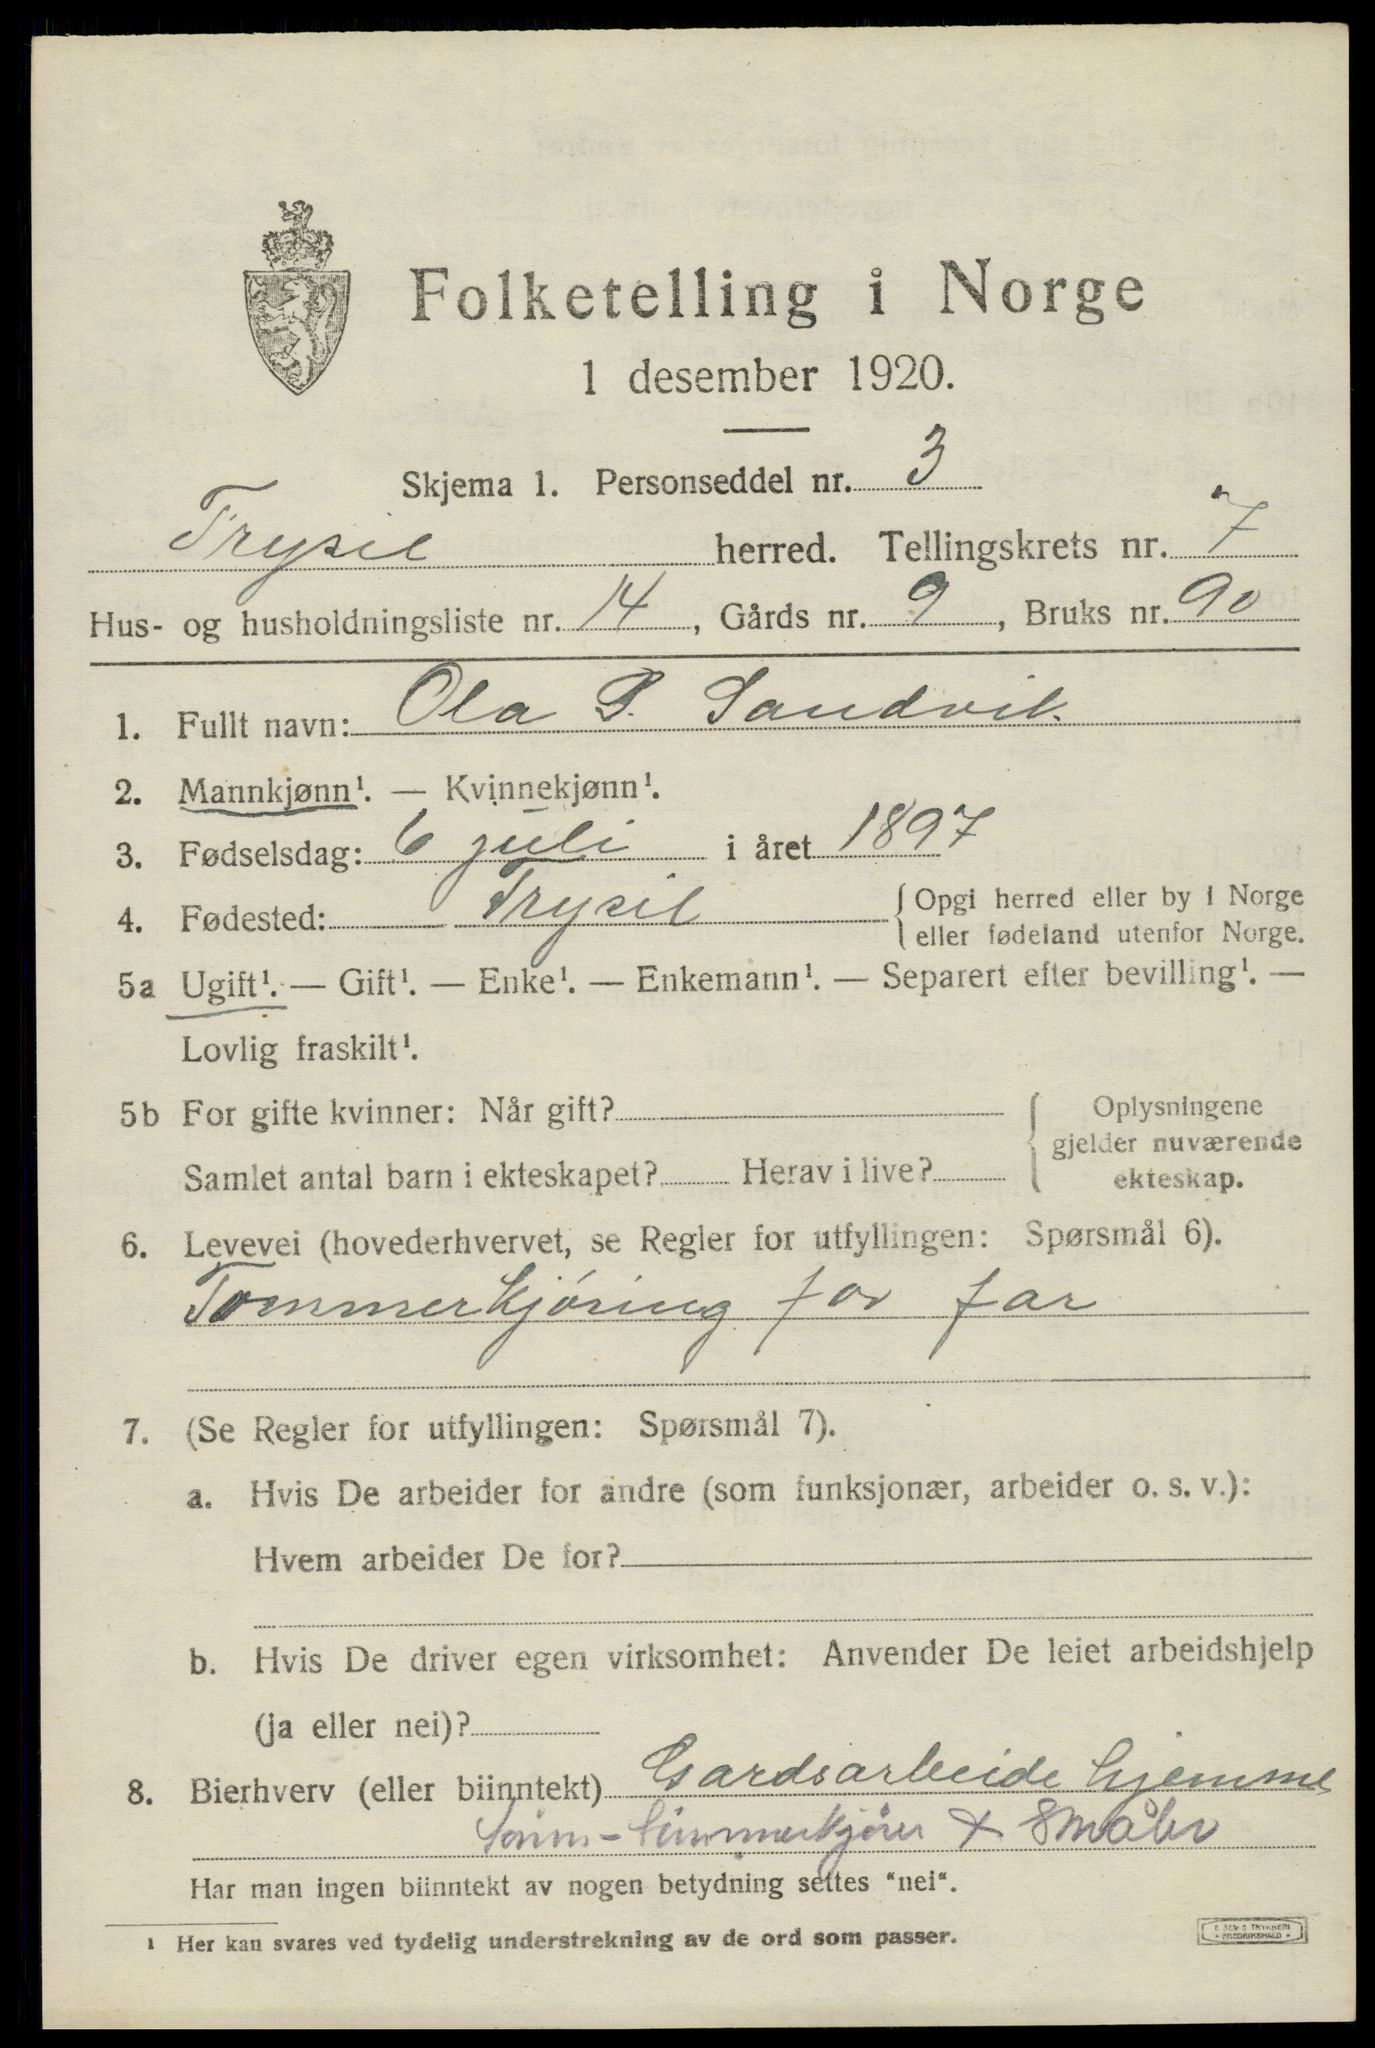 Folketelling i Norge
1 desember 1920.
Skjema 1. Personseddel nr. 3
Trysil herred. Tellingskrets nr. 7
Hus- og husholdningsliste nr. 14, Gårds nr. 9, Bruks nr. 90
1. Fullt navn: Ola P. Sandvik
2. Mannkjønn¹. — Kvinnekjønn¹.
3. Fødselsdag: 6 juli i året 1897
4. Fødested: Trysil { Opgi herred eller by i Norge
eller fødeland utenfor Norge.
5a Ugift¹. — Gift¹. — Enke¹. — Enkemann¹. — Separert efter bevilling¹. —
Lovlig fraskilt¹.
5b For gifte kvinner: Når gift?
Samlet antal barn i ekteskapet? Herav i live?
Oplysningene
gjelder nuværende
ekteskap.
6. Levevei (hovederhvervet, se Regler for utfyllingen: Spørsmål 6).
Tommerkjóring for far
7. (Se Regler for utfyllingen: Spørsmål 7).
a. Hvis De arbeider for andre (som funksjonær, arbeider o. s. v.):
Hvem arbeider De for?
b. Hvis De driver egen virksomhet: Anvender De leiet arbeidshjelp
(ja eller nei)?
8. Bierhverv (eller biinntekt) Gardsarbeide hjemme
Sønn-tømmerkjører x Småbr
Har man ingen biinntekt av nogen betydning settes "nei".
¹ Her kan svares ved tydelig understrekning av de ord som passer.